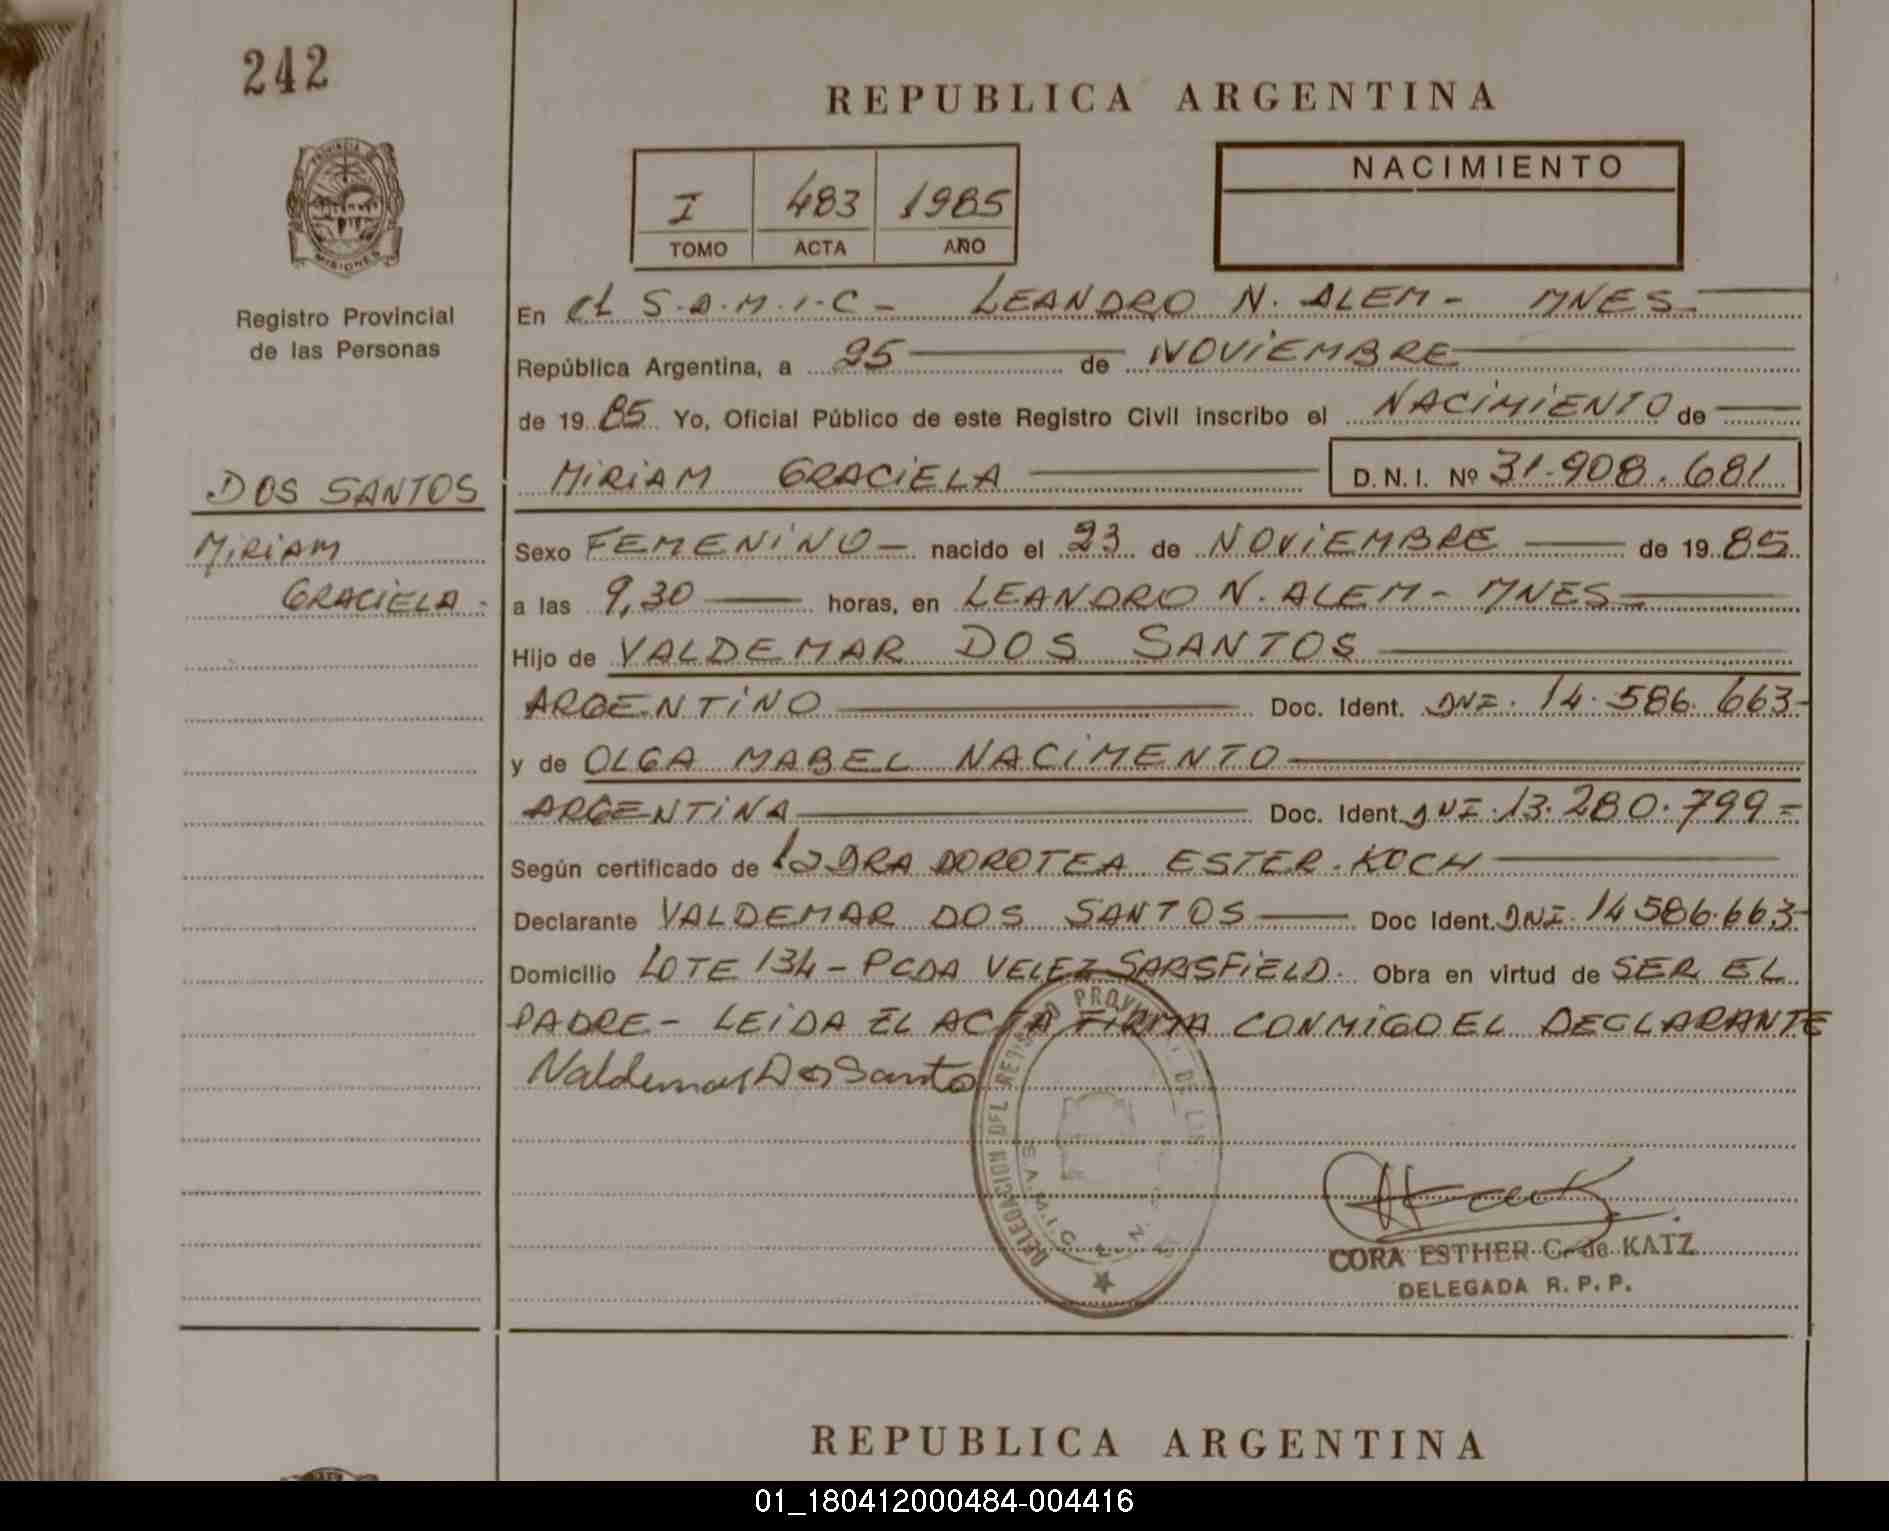 242
REPUBLICA ARGENTINA
PROVINCIA DE
MISIONES
Registro Provincial
de las Personas
I 483 1985
TOMO ACTA AÑO
NACIMIENTO
En EL S.A.M.I.C - LEANDRO N. ALEM - MNES
República Argentina, a 25 de NOVIEMBRE
de 19 85 Yo, Oficial Público de este Registro Civil inscribo el NACIMIENTO de
MIRIAM GRACIELA D.N.I. Nº 31.908.681
DOS SANTOS
MIRIAM
GRACIELA.
Sexo FEMENINO - nacido el 23 de NOVIEMBRE de 19 85
a las 9,30 horas, en LEANDRO N. ALEM - MNES
Hijo de VALDEMAR DOS SANTOS
ARGENTINO Doc. Ident. DNI. 14.586.663-
y de OLGA MABEL NACIMENTO
ARGENTINA Doc. Ident. DNI. 13.280.799=
Según certificado de la DRA DOROTEA ESTER. KOCH
Declarante VALDEMAR DOS SANTOS Doc Ident. DNI. 14586.663-
Domicilio LOTE 134 - PCDA VELEZ SARSFIELD. Obra en virtud de SER EL
PADRE - LEIDA EL ACTA FIRMA CONMIGO EL DECLARANTE
Valdemar Dos Santo
DELEGACION DEL REGISTRO PROVINCIAL DE LAS
S.A.M.I.C. L. N.
CORA ESTHER C. de KATZ
DELEGADA R.P.P.
REPUBLICA ARGENTINA
01_180412000484-004416